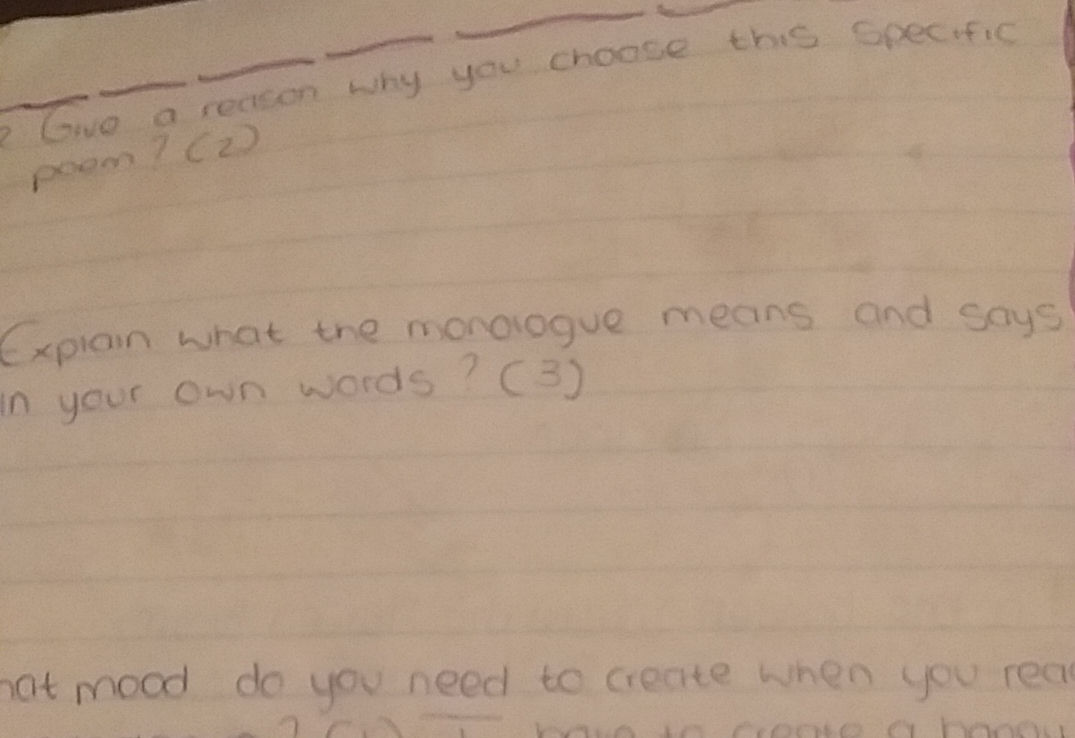 ? Give a reason why you choose this specific
poem? (2)
Explain what the monologue means and says
in your own words? (3)
hat mood do you need to create when you rea
? (1) I have to create a happy